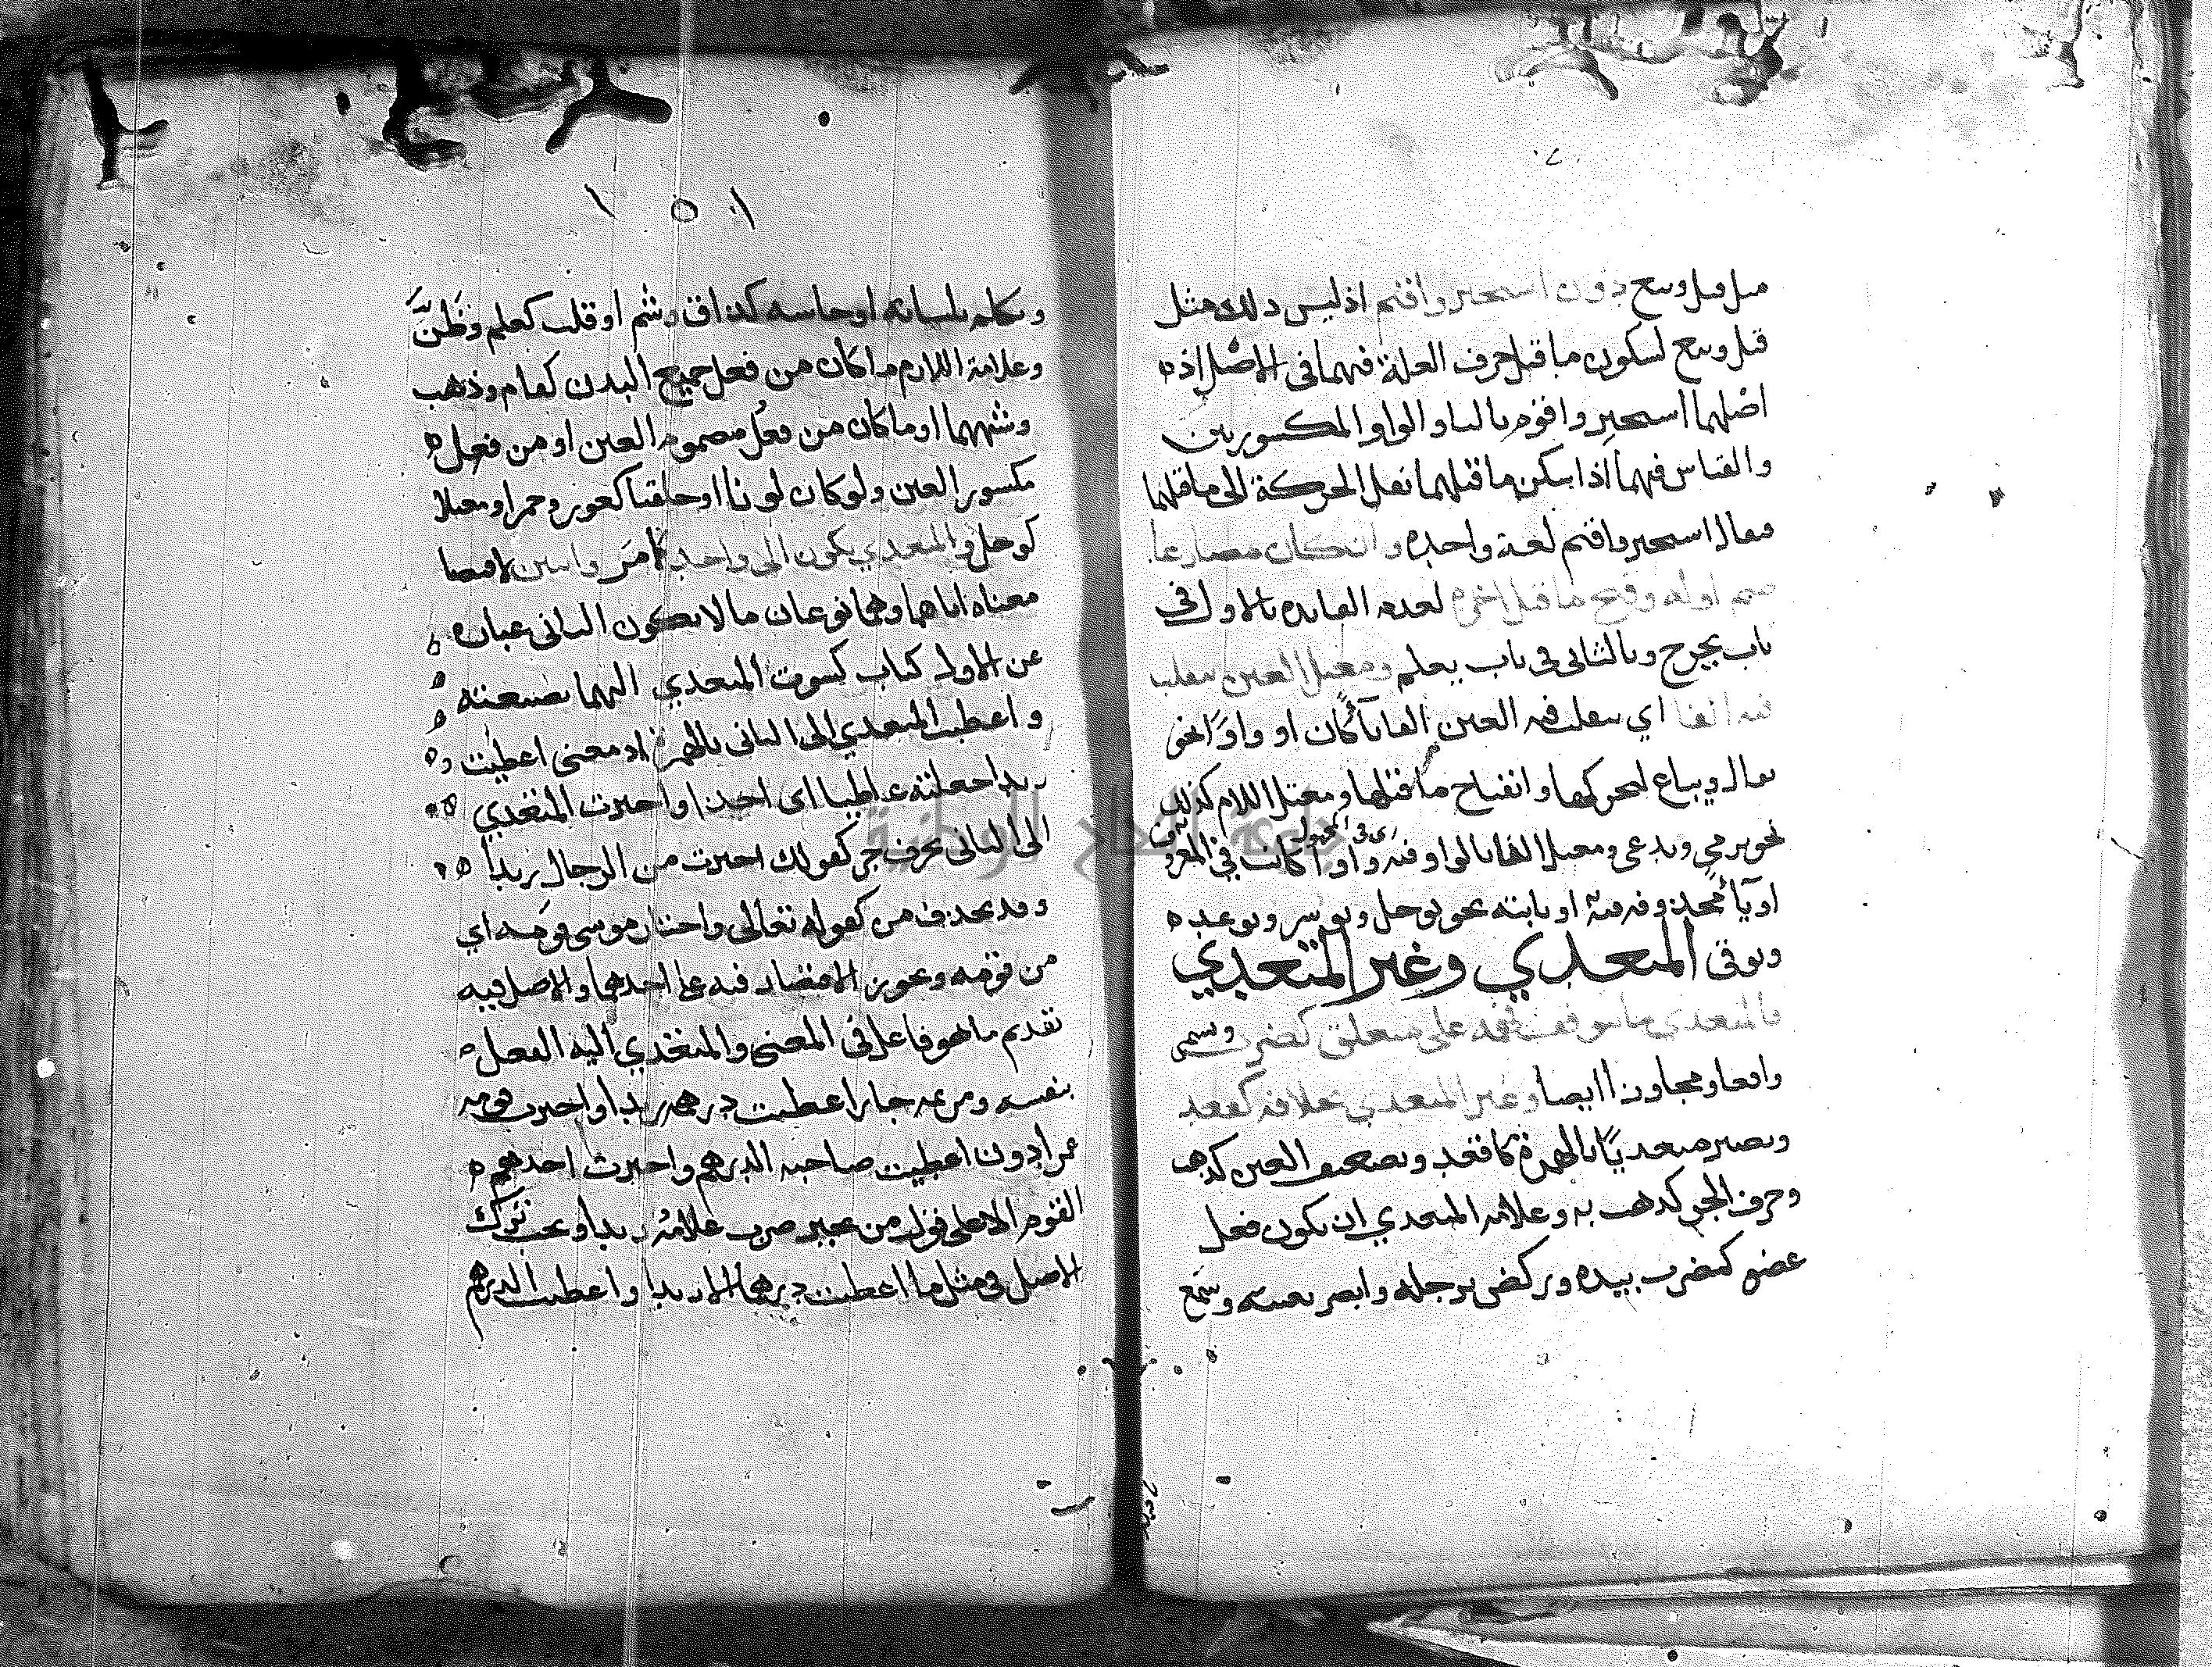 مثل قيل وبيع دون استحير واقيم اذ ليس ذلك مثل
قيل وبيع لسكون ما قبل حرف العلة فيهما في الاصل اذ
اصلهما استحير واقوم بالياء والواو المكسورتين
والقياس فيهما اذا سكن ما قبلهما نقل الحركة الى ما قبلهما
فيقال استحير واقيم لغة واحدة وان كان مضارعا
ضم اوله وفتح ما قبل اخره لعدم الفايدة بالاول في
باب يخرج وبالثاني في باب يعلم ومعتل العين ينقلب
فيه الفا اي ينقلب فيه العين الفا ياً كان او واوًا نحو
يقال ويباع لتحركها وانفتاح ما قبلها ومعتل اللام كذلك
نحو يرمى ويدعى ومعتل الفا بالواو فيه واوا كانت في
او يا نحو بوحل ويوسر ويوعد
ويوقى المتعدي وغير المتعدي
فالمتعدي ما يتوقف فهمه على متعلق كضرب ويسمى
واقعا ومجاوزا ايضا وغير المتعدي بخلافه كقعد
ويصير متعديًا بالهمزة كاقعد وتضعيف العين كذهب
وحرف الجر كذهب به وعلامة المتعدي ان يكون فعل
عضو كضرب بيده وركض برجله وابصر بعينه وسمع
١٥١
وتكلم بلسانه او حاسه كذاق وشم او قلب كعلم وظَنَّ
وعلامة اللازم ما كان من فعل جميع البدن كقام وذهب
وشبههما او ما كان من فعُل مضموم العين او من فعل
مكسور العين ولو كان لونا او خلقة كعور وحمر او معتلا
كوحل والمتعدي يكون الى واحد كما مر واثنين لاقتضا
معناه اياهما وهما نوعان ما لا يكون الثاني عبارة
عن الاول كباب كسوت المتعدي اليهما بصيغته
واعطيت المتعدي الى الثاني بالهمزة اذ معنى اعطيت
زيدا جعلته عاطيا اي اخذا واخترت المتعدي
الى الثاني بحرف جر كقولك اخترت من الرجال زيدا
وقد يحذف من كقوله تعالى واختار موسى قومه اي
من قومه ويجوز الاقتصار فيه على احدهما والاصل فيه
تقديم ما هو فاعل في المعنى والمتعدي اليه الفعل
بنفسه ومن ثم جاز اعطيت درهمه زيدا واخترت قومه
عمرا دون اعطيت صاحبه الدرهم واخترت احدهم
القوم الا على قول من يجيز ضرب غلامُه زيدا ويجب ترك
الاصل في مثل ما اعطيت درهما الا زيدا واعطيت الدرهم